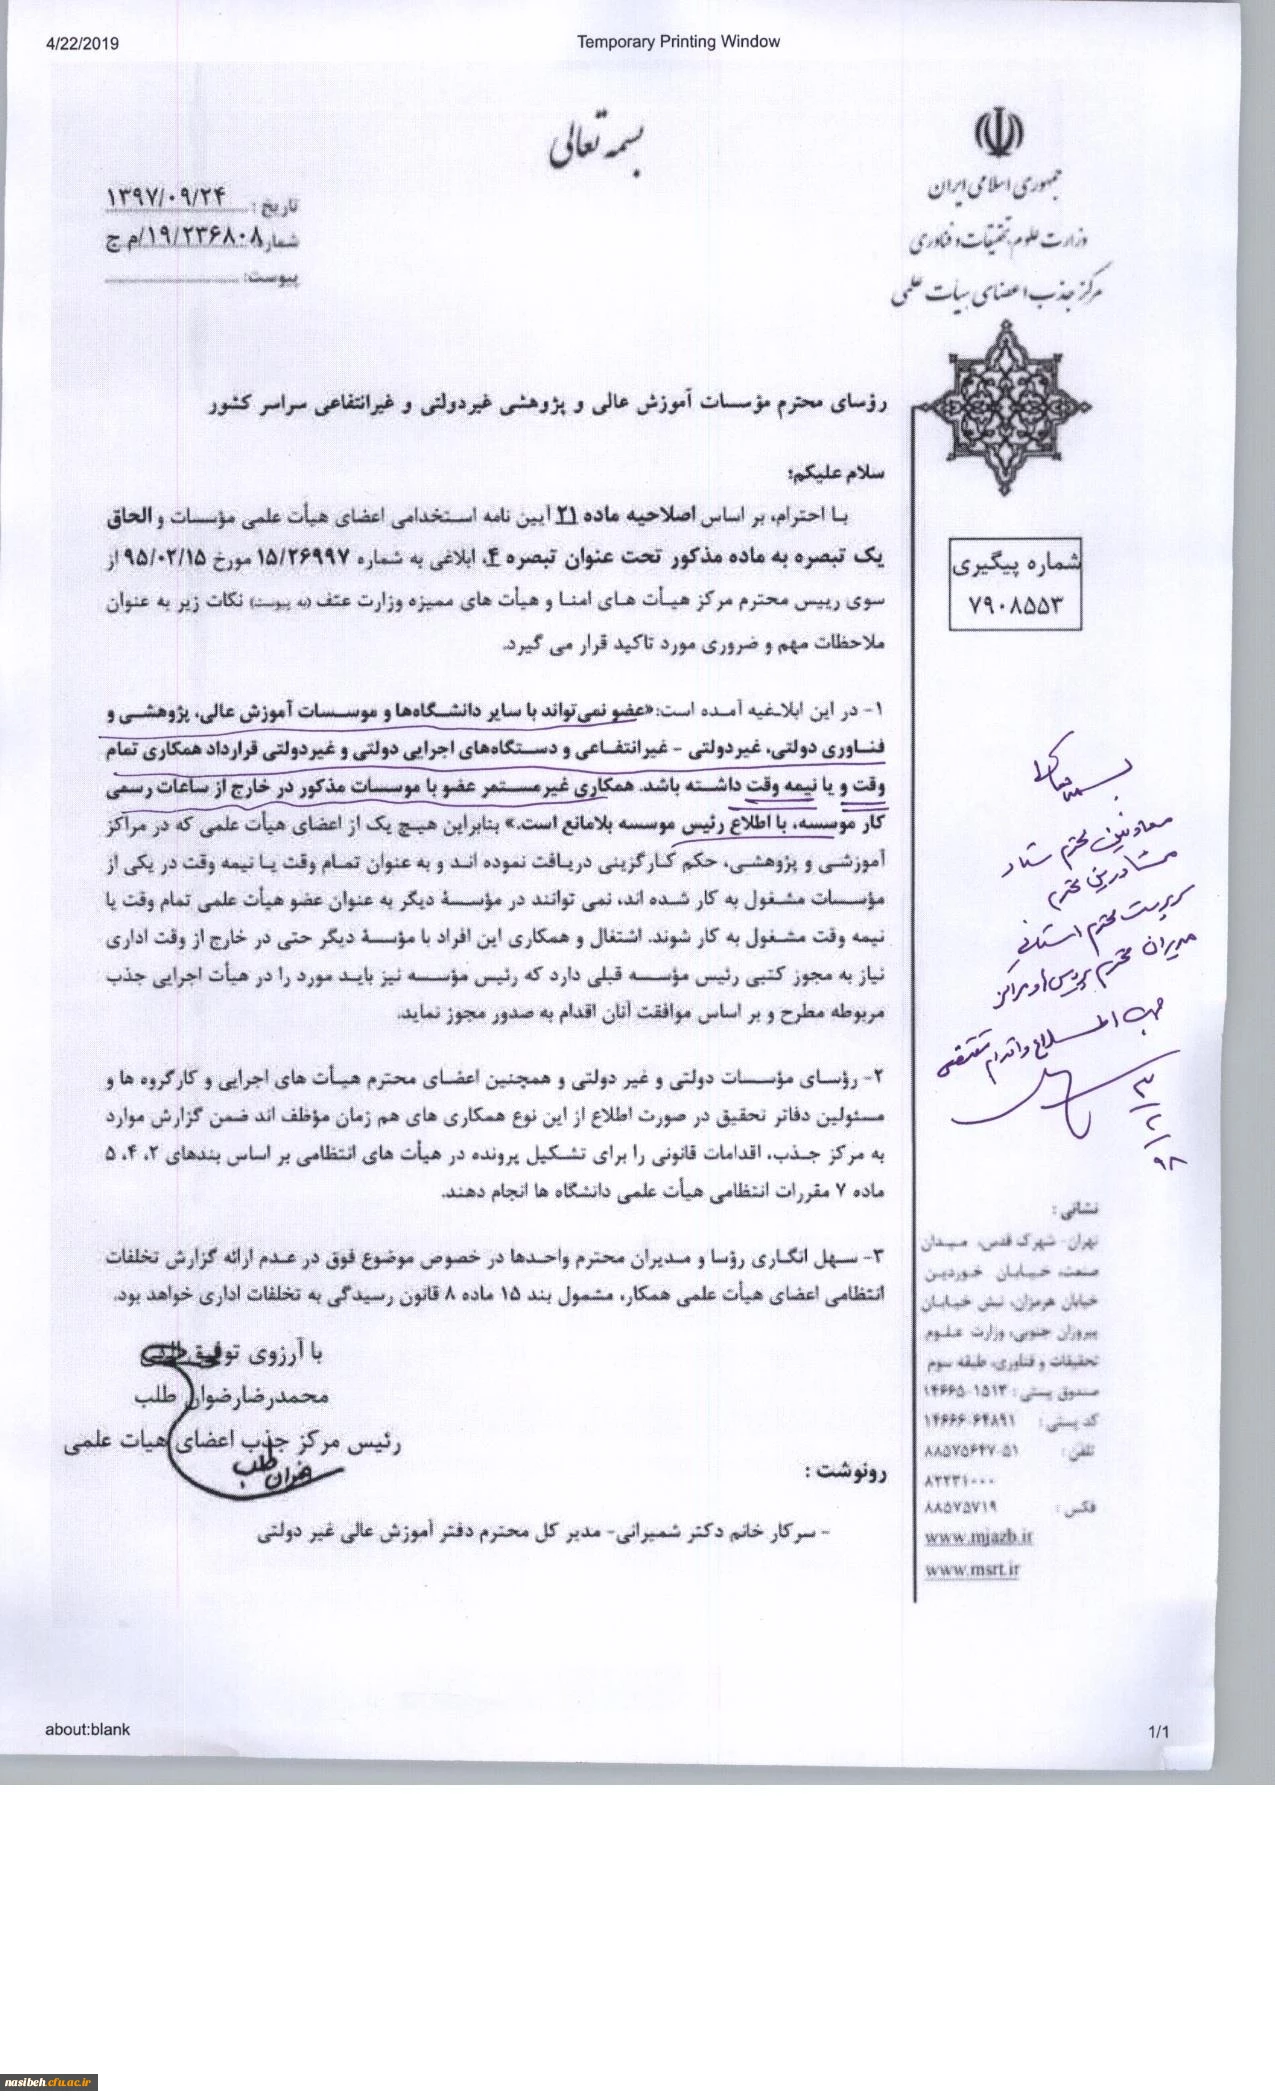 4/22/2019
Temporary Printing Window
بسمه تعالی
جمهوری اسلامی ایران
وزارت علوم، تحقیقات و فناوری
مرکز جذب اعضای هیأت علمی
تاریخ: ۱۳۹۷/۰۹/۲۴
شماره ۱۹/۲۳۶۸۰۸/م ج
پیوست:
رؤسای محترم مؤسسات آموزش عالی و پژوهشی غیردولتی و غیرانتفاعی سراسر کشور
سلام علیکم؛
با احترام، بر اساس اصلاحیه ماده ۲۱ آیین نامه استخدامی اعضای هیأت علمی مؤسسات و الحاق
یک تبصره به ماده مذکور تحت عنوان تبصره ۴، ابلاغی به شماره ۱۵/۲۶۹۹۷ مورخ ۹۵/۰۲/۱۵ از
سوی رییس محترم مرکز هیأت های امنا و هیأت های ممیزه وزارت عتف (به پیوست) نکات زیر به عنوان
ملاحظات مهم و ضروری مورد تاکید قرار می گیرد.
۱- در این ابلاغیه آمده است: «عضو نمی‌تواند با سایر دانشگاه‌ها و موسسات آموزش عالی، پژوهشی و
فناوری دولتی، غیردولتی - غیرانتفاعی و دستگاه‌های اجرایی دولتی و غیردولتی قرارداد همکاری تمام
وقت و یا نیمه وقت داشته باشد. همکاری غیرمستمر عضو با موسسات مذکور در خارج از ساعات رسمی
کار موسسه، با اطلاع رئیس موسسه بلامانع است.» بنابراین هیچ یک از اعضای هیأت علمی که در مراکز
آموزشی و پژوهشی، حکم کارگزینی دریافت نموده اند و به عنوان تمام وقت یا نیمه وقت در یکی از
مؤسسات مشغول به کار شده اند، نمی توانند در مؤسسۀ دیگر به عنوان عضو هیأت علمی تمام وقت یا
نیمه وقت مشغول به کار شوند. اشتغال و همکاری این افراد با مؤسسۀ دیگر حتی در خارج از وقت اداری
نیاز به مجوز کتبی رئیس مؤسسه قبلی دارد که رئیس مؤسسه نیز باید مورد را در هیأت اجرایی جذب
مربوطه مطرح و بر اساس موافقت آنان اقدام به صدور مجوز نماید.
۲- رؤسای مؤسسات دولتی و غیر دولتی و همچنین اعضای محترم هیأت های اجرایی و کارگروه ها و
مسئولین دفاتر تحقیق در صورت اطلاع از این نوع همکاری های هم زمان مؤظف اند ضمن گزارش موارد
به مرکز جذب، اقدامات قانونی را برای تشکیل پرونده در هیأت های انتظامی بر اساس بندهای ۲، ۴، ۵
ماده ۷ مقررات انتظامی هیأت علمی دانشگاه ها انجام دهند.
۳- سهل انگاری رؤسا و مدیران محترم واحدها در خصوص موضوع فوق در عدم ارائه گزارش تخلفات
انتظامی اعضای هیأت علمی همکار، مشمول بند ۱۵ ماده ۸ قانون رسیدگی به تخلفات اداری خواهد بود.
با آرزوی توفیق الهی
محمدرضا رضوان طلب
رئیس مرکز جذب اعضای هیات علمی
رونوشت :
- سرکار خانم دکتر شمیرانی- مدیر کل محترم دفتر آموزش عالی غیر دولتی
شماره پیگیری
۷۹۰۸۵۵۳
معاونین محترم ستاد
مشاورین محترم
سرپرست محترم استانی
مدیران محترم پردیس‌ها و مراکز
جهت اطلاع و اقدام مقتضی
۹۸/۲/۳
نشانی:
تهران- شهرک قدس، میدان
صنعت، خیابان خوردین
خیابان هرمزان، نبش خیابان
پیروزان جنوبی، وزارت علوم
تحقیقات و فناوری، طبقه سوم
صندوق پستی: ۱۵۱۳-۱۴۶۶۵
کد پستی: ۶۴۸۹۱-۱۴۶۶۶
تلفن: ۸۸۵۷۵۶۴۷-۵۱
۸۲۲۳۱۰۰۰
فکس: ۸۸۵۷۵۷۱۹
www.mjazb.ir
www.msrt.ir
about:blank
1/1
nasibeh.cfu.ac.ir